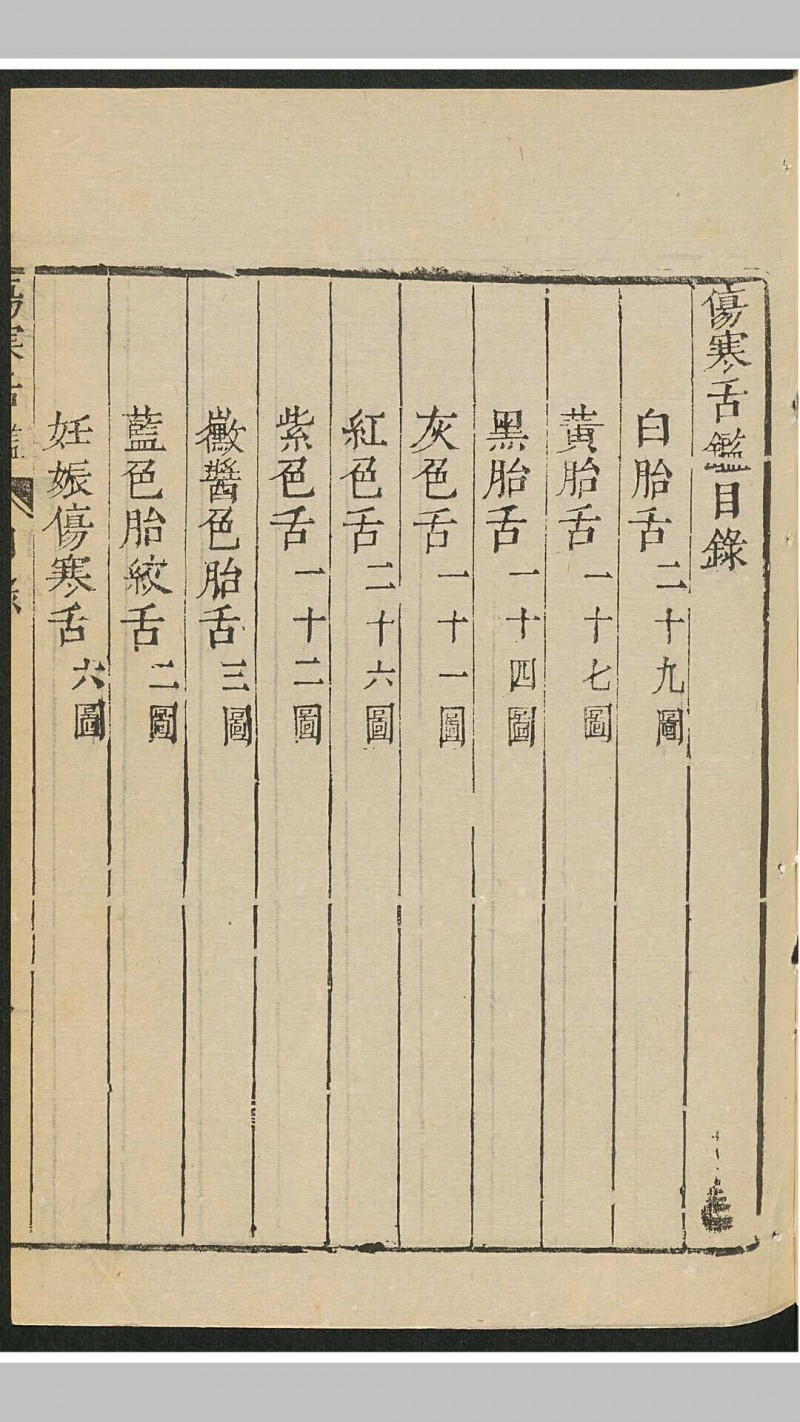 傷寒舌鑑目錄
白胎舌二十九圖
黃胎舌一十七圖
黑胎舌一十四圖
灰色舌一十一圖
紅色舌二十六圖
紫色舌一十二圖
黴醬色胎舌三圖
藍色胎紋舌二圖
妊娠傷寒舌六圖
傷寒舌鑑 目錄